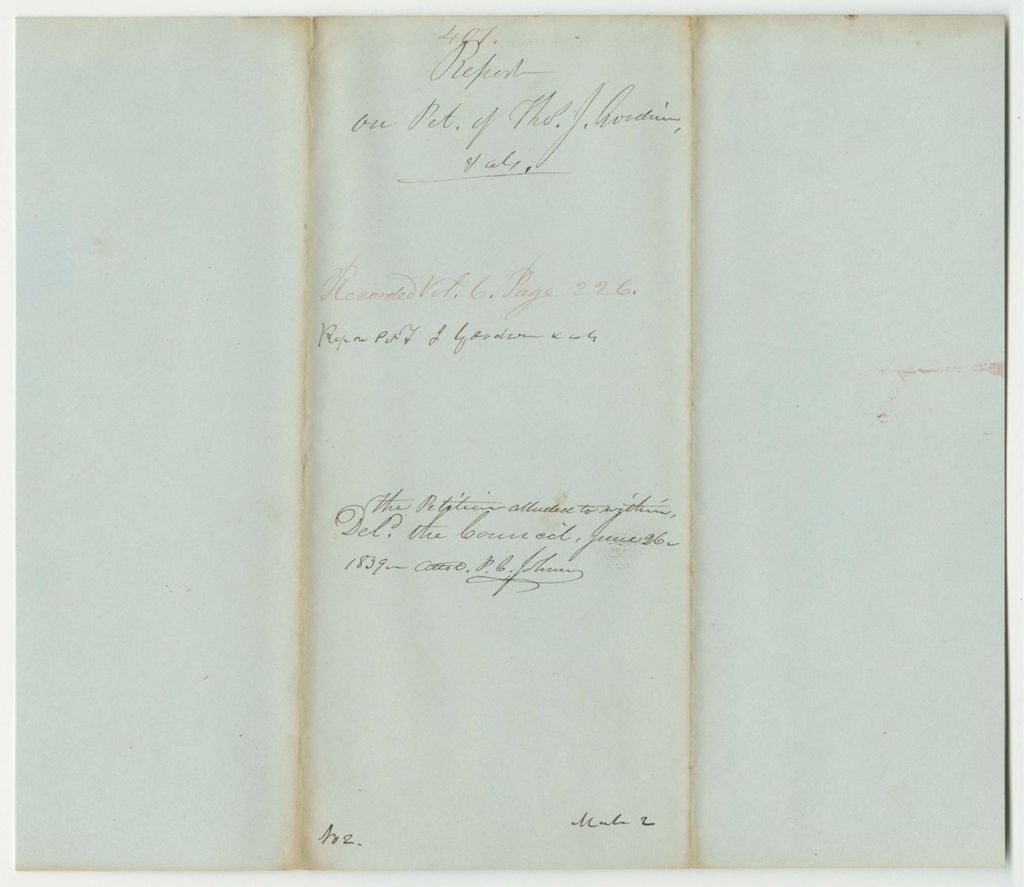 407.
Report
on Pet. of Tho. J. Goodwin,
& als.
Recorded Vol. 6. Page 226.
Repo Pet T J Goodwin & als
The Petition alluded to within,
Deld. the Council, June 26
1839 Attest. P. C. Johnson
No 2.
2